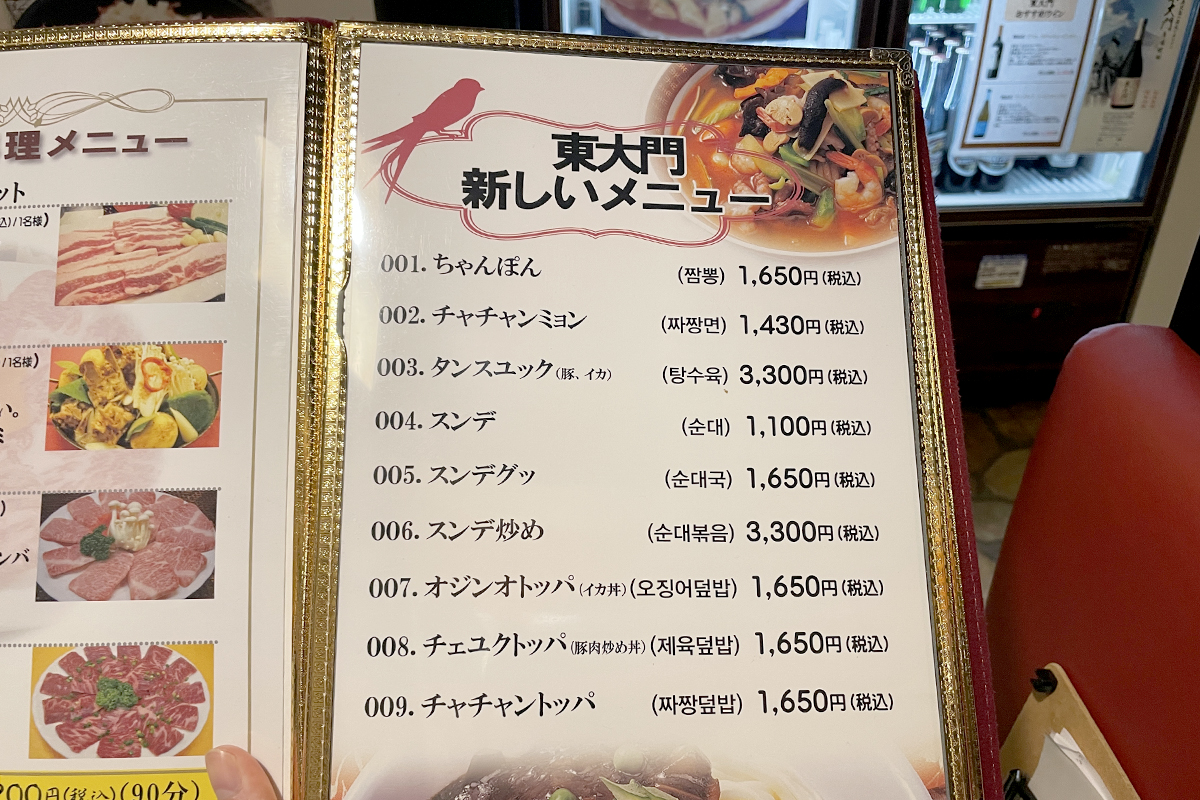 理メニュー
ット
込)/1名様)
/1名様)
い。
ンバ
200円(税込)(90分)
東大門
新しいメニュー
001. ちゃんぽん (짬뽕) 1,650円(税込)
002. チャチャンミョン (짜짱면) 1,430円(税込)
003. タンスユック(豚、イカ) (탕수육) 3,300円(税込)
004. スンデ (순대) 1,100円(税込)
005. スンデグッ (순대국) 1,650円(税込)
006. スンデ炒め (순대볶음) 3,300円(税込)
007. オジンオトッパ(イカ丼)(오징어덮밥) 1,650円(税込)
008. チェユクトッパ(豚肉炒め丼)(제육덮밥) 1,650円(税込)
009. チャチャントッパ (짜짱덮밥) 1,650円(税込)
東大門
おすすめワイン